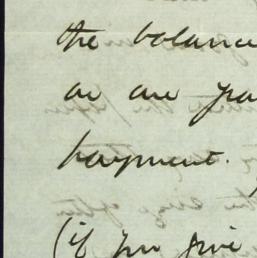 the balance
as are pa
payment.
(if you give